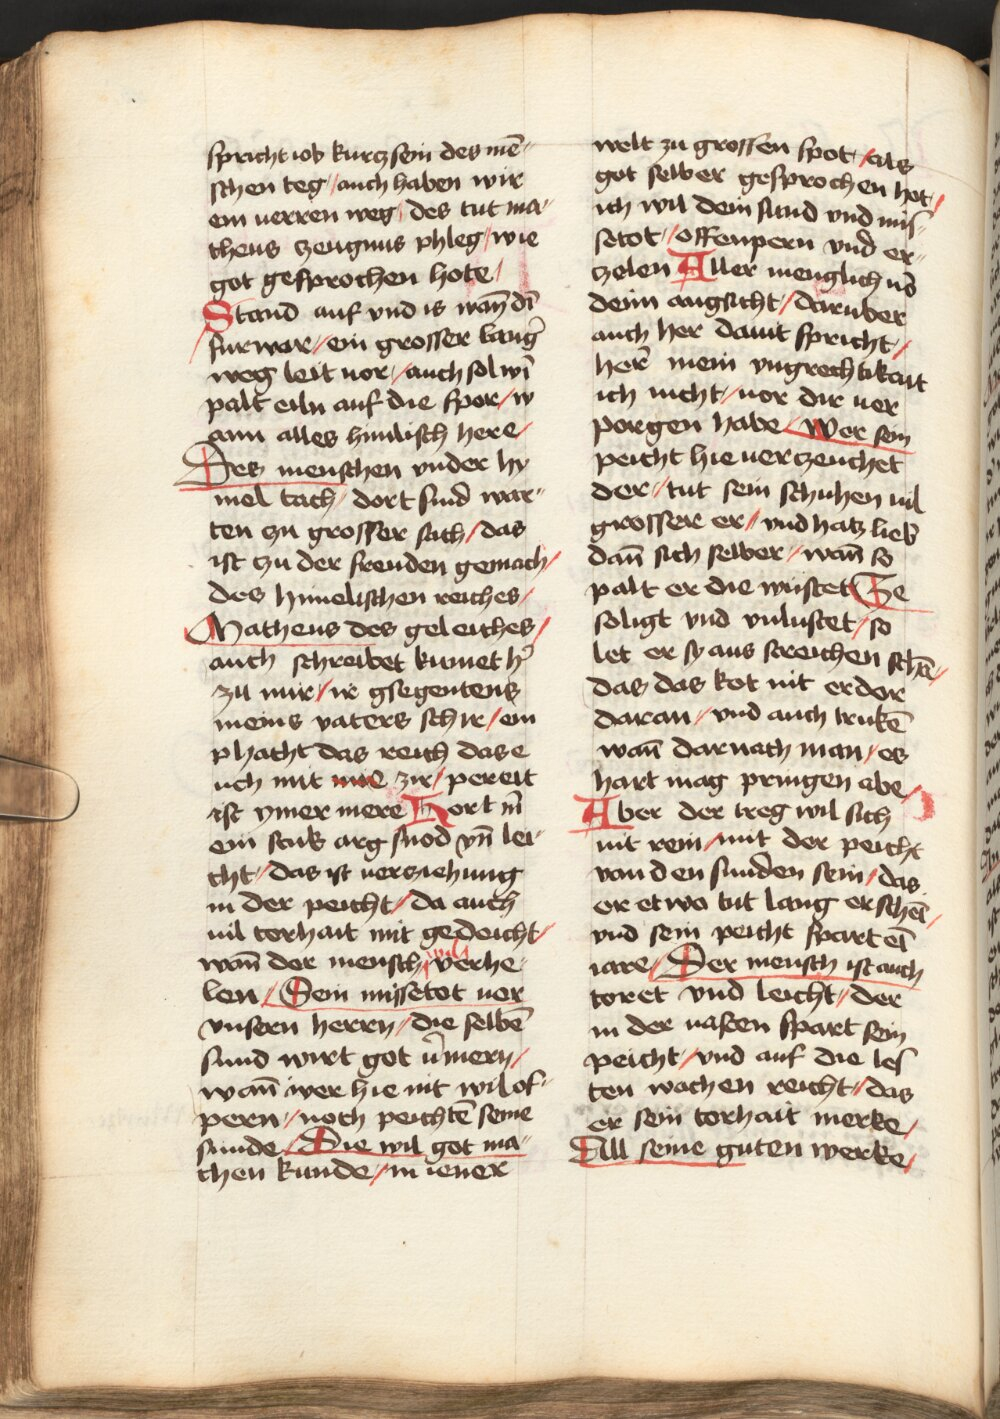 spricht iob kurcz sein des mē-
schen teg / auch haben wir
ein uerren weg / des tut ma-
theus czeugnus phleg / wie
got gesprochen hote /
Stand auf vnd is wañ dī
fur war / ein grosser lang̃
weg leit uor / auch sol wī
palt eiln auf die spor / w
ann alles himlisch here /
Des menschen vnder hy
mel tach / dort sind war-
ten zu grosser sach / das
ist zu der freuden gemach /
des himelischen reiches /
Matheus des geleiches /
auch schreibet kumet h̃
zu mir / ir gsegentens
meins vaters schir / em
phacht das reich das e
uch mit zir / pereit
ist ymer mere Hort m̄
ein stuk arg snod vn̄ lei-
cht / das ist uerziehung
in der peicht / da auch
uil torhait mit gedeicht /
wañ der mensch wil verhe
len / Sein missetot uor
vnsern herrn / die selbē
sund wirt got ūmern /
wañ wer hie nit wil of-
pern / noch peichtē seine
sunde / Die wil got ma-
chen kunde / in iener
welt zu grossen spot / als
got selber gesprochen hot /
ich wil dein sund vnd mis-
setot / offenpern vnd er-
czelen Aller menglich uō
deim angsicht / daruber
auch her dauit spricht /
her̄ mein vngrechtikait
ich nicht / uor dir uer
porgen habe / Wer sein
peicht hie uerczeuchet
der / tut sein schuhen uil
grosser er / vnd hatz lieb̃
dañ sich selber / wañ so
palt er die wustet Be
soligt vnd vnlustet / so
let er sy aus streichen schā-
das das kot nit erdor
daran / vnd auch trukē
wañ darnach man / es
hart mag pringen abe /
Aber der treg wil sich
nit rein / mit der peicht
van den sunden sein / das
er etwo tut lang erschē /
vnd sein peicht spart eī
iare / Der mensch ist auch
toret vnd leicht / der
in der uasten spart sein
peicht / vnd auf die les
ten wochen reicht / das
er sein torhait merke /
All seine guten werke /